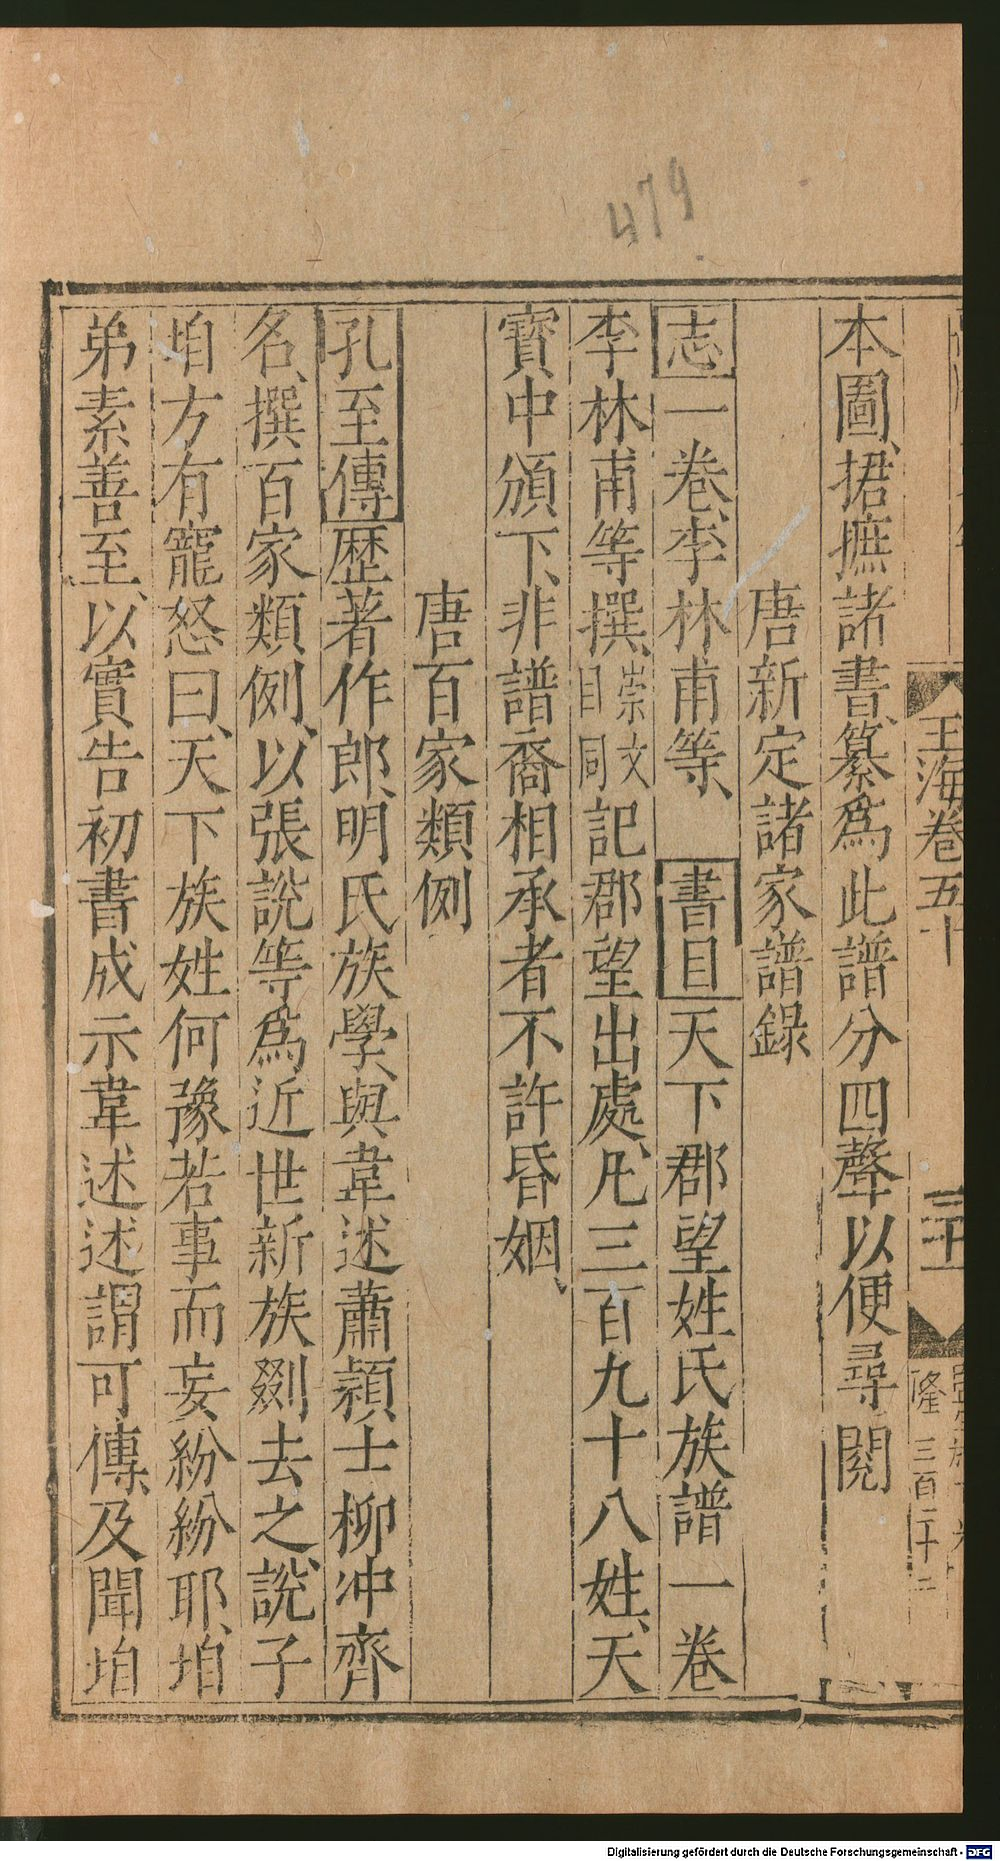 479
玉海卷五十
隆 三百二十二
本圖、捃摭諸書、纂爲此譜分四聲以便尋閱
唐新定諸家譜錄
志一卷、李林甫等、 書目天下郡望姓氏族譜一卷
李林甫等撰、崇文目同記郡望出處、凡三百九十八姓、天
寳中頒下、非譜裔相承者不許昏姻、
唐百家類例
孔至傳歷著作郎、明氏族學、與韋述蕭頴士柳沖齊
名、撰百家類例、以張說等爲近世新族剟去之、說子
垍方有寵怒曰、天下族姓何豫若事而妄紛紛耶、垍
弟素善至、以實告初書成示韋述述謂可傳、及聞垍
Digitalisierung gefördert durch die Deutsche Forschungsgemeinschaft - DFG